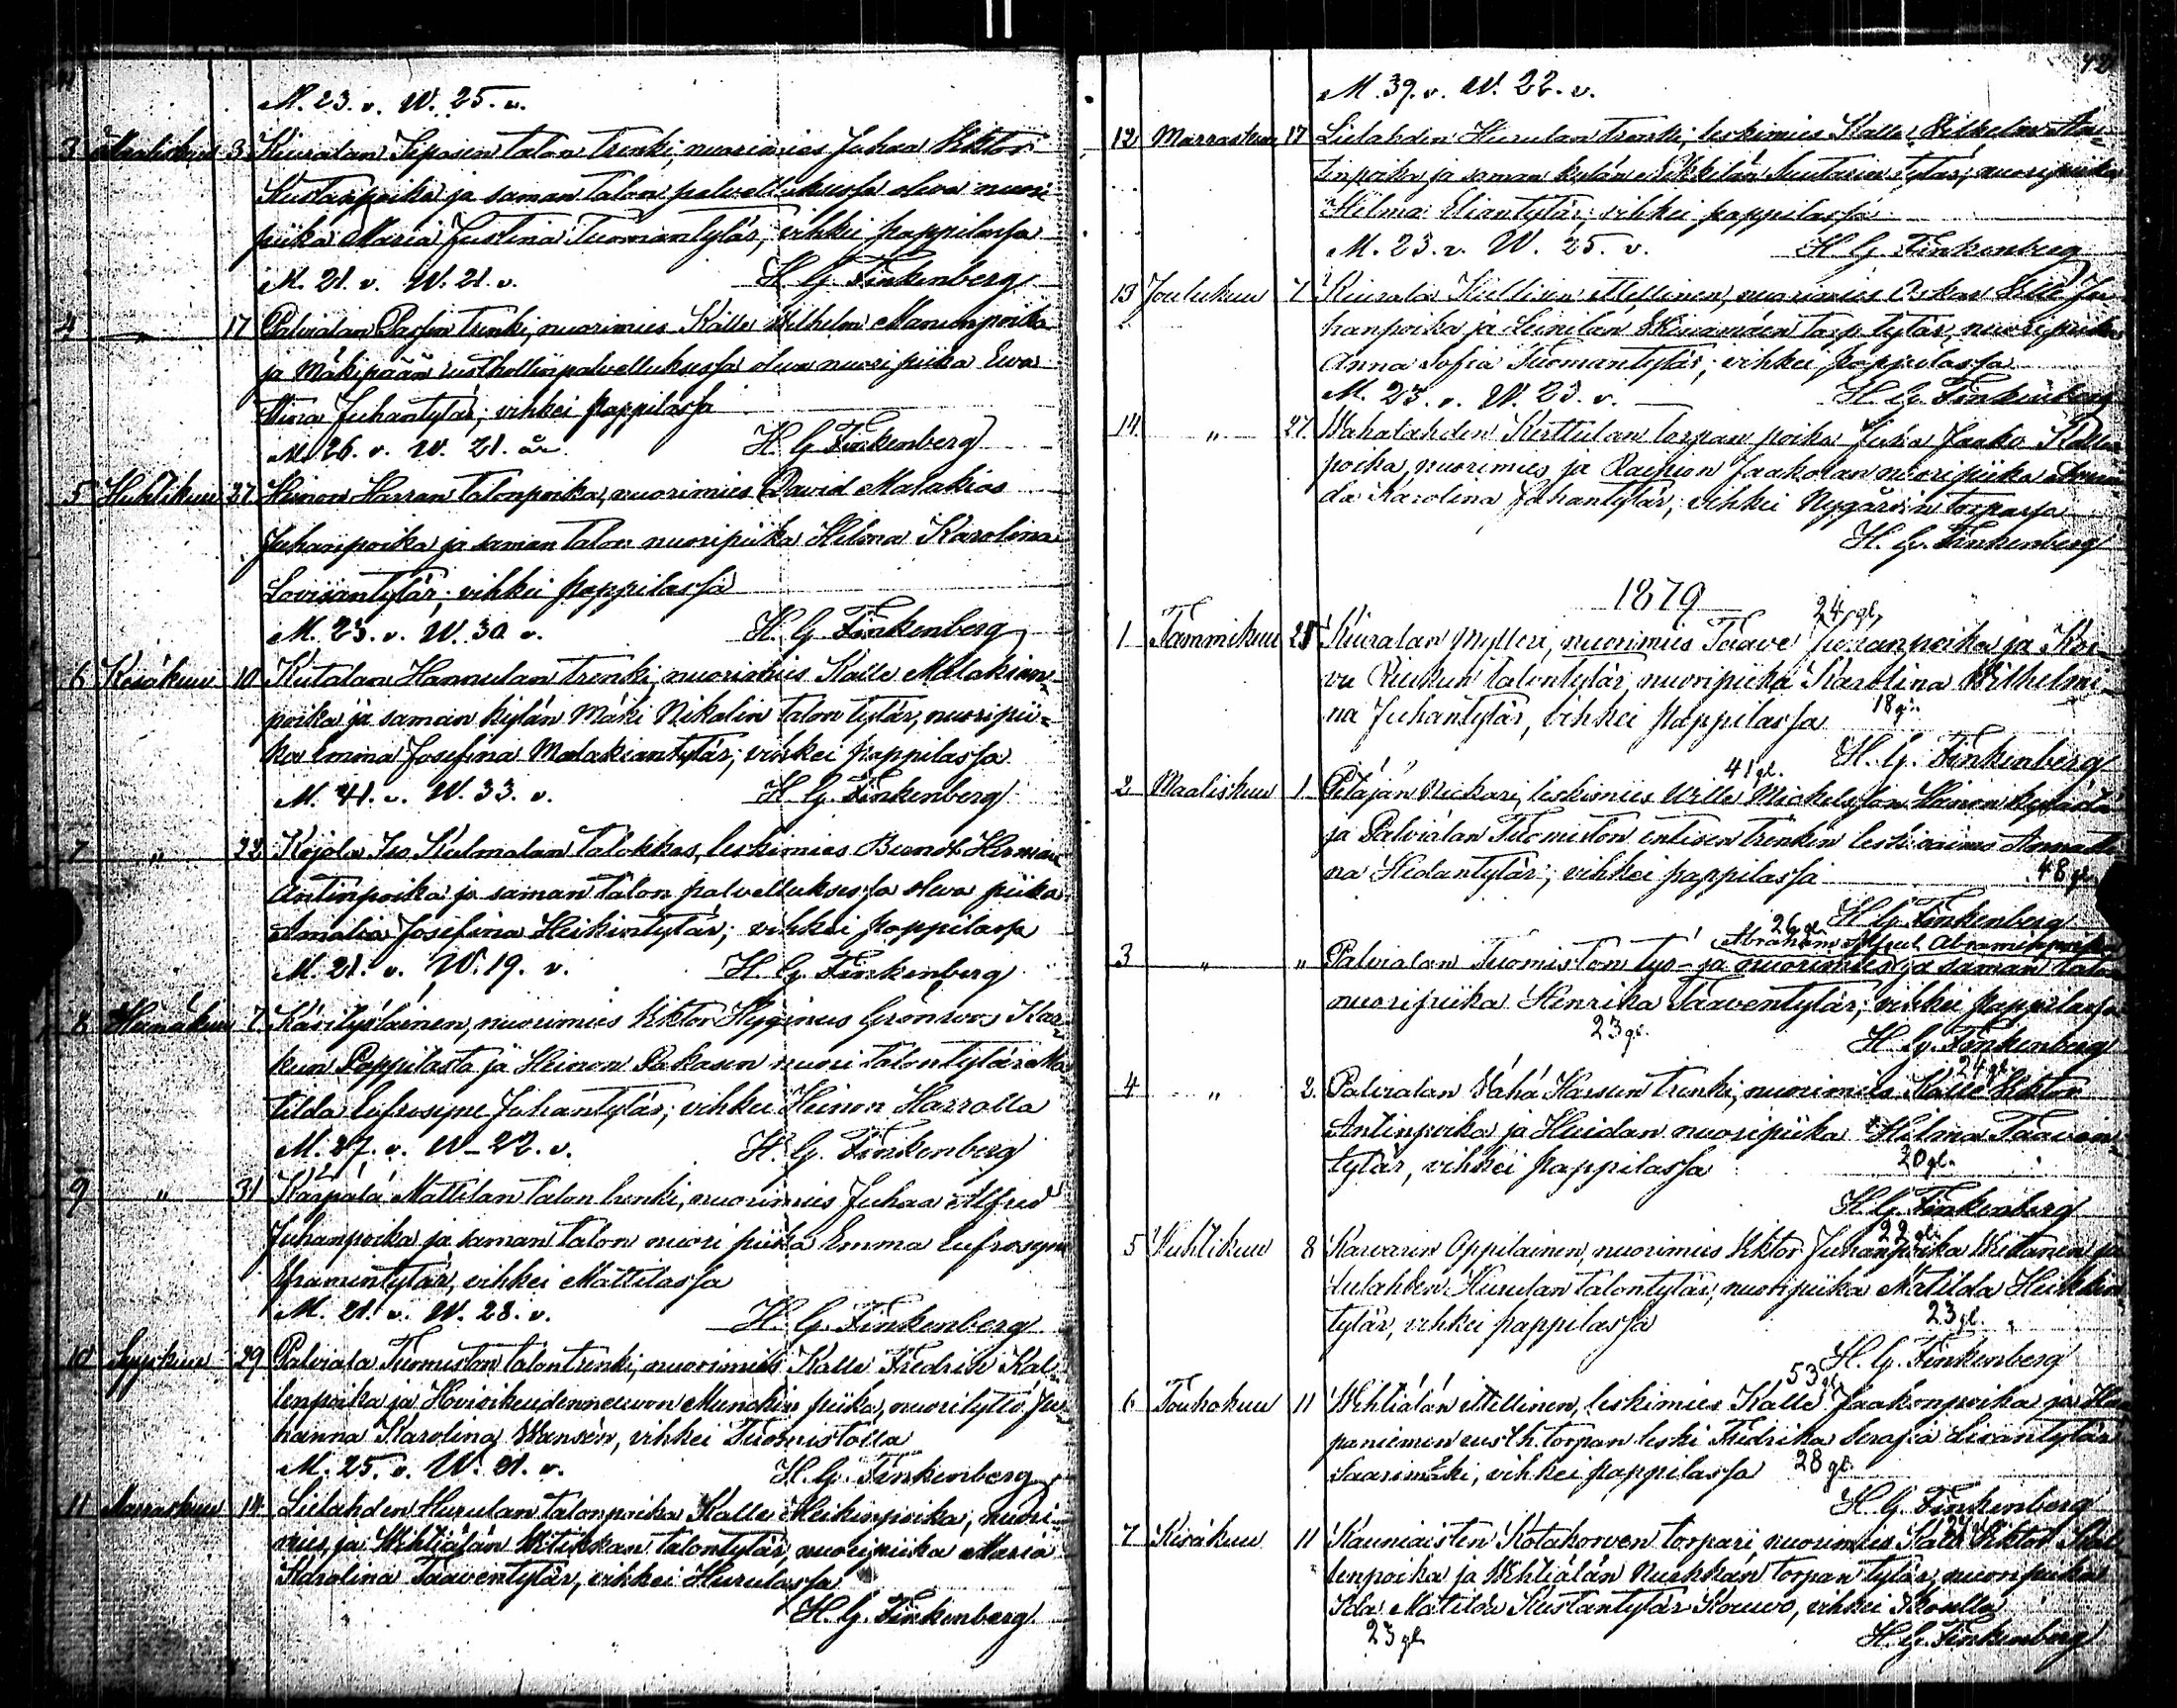 M. 23. v. W. 25. v.
3 Maaliskuu 3 Kiuralan Seposen talon trenki, nuorimies Juhaa Viktor
Kustaanpoika ja saman talon palvelluksessa oleva nuori
piika Maria Justina Tuomantytär, vihkii pappilassa
M. 21. v. W. 21. v. H. G. Finkenberg
4 " 17 Palvialan Pasin trenki, nuorimies Kalle Wilhelm Manunpoika
ja Mäkipään rusthollin palvelluksessa oleva nuori piika Ewa
Juhantytär; vihkei pappilassa
M. 26. v. W. 21. år H. G. Finkenberg
5 Huhtikuu 27 Heinon Harran talonpoika, nuorimies David Malakias
Juhanpoika ja saman talon nuoripiika Helena Karolina
Lovisantytär; vihkei pappilassa
M. 23. v. W. 30 v. H. G. Finkenberg
6 Kesäkuu 10 Kutalan Hannulan trenki, nuorimies Kalle Malakian-
poika ja saman kylän Mäki Nikalin talon tytär, nuoripii=
ka Emma Josefina Malakiantytär; vihkei pappilassa
M. 41. v. W. 33. v. H. G. Finkenberg
7 " 22 Kojola Iso Kulmalan talokkas, leskimies Berndt Herman
Antinpoika ja saman talon palvelluksessa oleva piika
Amalia Josefina Heikintytär; vihkei pappilassa
M. 21. v. W. 19. v. H. G. Finkenberg
8 Heinäkuu 7 nuorimies Viktor Hyginus Grönroos Kar-
kun Pappilasta ja Heinon Pakasen nuori talontytär Ma
tilda Eufrosyne Juhantytär; vihkei Heinon Harralla
M. 27. v. W. 22. v. H. G. Finkenberg
9 " 31 Karpälä Mattilan talon trenki, nuorimies Juhaa Alfred
Juhanpoika ja saman talon nuori piika Emma Eufrosyne
vihkei Mattilassa
M. 21. v. W. 28. v. H. G. Finkenberg
10 Syyskuu 29 Palviala Tuomiston talon trenki, nuorimies Kalle Fredrik Kal-
lenpoika ja piika, nuorityttö Ju-
hanna Karolina vihkei Tuomistolla
M. 25. v. W. 21. v. H. G. Finkenberg
11 Marraskuu 14 Liulahden Hurulan talonpoika Kalle Heikinpoika, nuori-
mies ja Wehtiälän talontytär, nuoripiika Maria
Karolina Taaventytär, vihkei Hurulassa
H. G. Finkenberg
42
M. 39. v. W. 22. v.
12 Marraskuu 17 Liulahden Hurulan trenki, leskimies Kalle Wilhelm An-
tinpoika ja saman kylän Suutarin tytär; nuoripiika
Hilma Eliantytär; vihkei pappilassa
M. 23. v. W. 25. v. H. G. Finkenberg
13 Joulukuu 7 nuorimies Oskar Ville Ju
hanpoika ja torp tytär, nuoripiika
Anna Sofia Tuomantytär; vihkei pappilassa
M. 25. v. W. 23. v. H. G. Finkenberg
14. " 27. Wahalahden Kerttulan torpan poika Juha Jaako Kalle
poika, nuorimies ja Raipion Jaakolan nuoripiika
da Karolina Juhantytär; vihkei Nygårdin torpassa
H. G. Finkenberg
1879
24 gl.
1 Tammikuu 28 Kiuralan Mylleri, nuorimies Taave Juhanpoika ja Kar-
talontytär, nuoripiika Karolina Wilhelmi-
na Juhantytär, vihkei pappilassa 18 gl.
H. G. Finkenberg
41 gl.
2 Maaliskuu 1. Petäjän Nickari, leskimies Wille Heinon kylästä
ja Palvialan Tuomiston entisen trenkin leskivaimo
na Hedantytär; vihkei pappilassa 48 gl.
H. G. Finkenberg
26 gl.
Abraham Abraminpoika
3 " " Palvialan Tuomiston ja nuorimies ja saman talon
nuoripiika Henrika Taaventytär; vihkei pappilassa
23 gl.
H. G. Finkenberg
24 gl.
4 " 2. Palvialan Vähä Hassun trenki, nuorimies Kalle Viktor
Antinpoika ja Huidan nuoripiika Hilma Taavin-
tytär, vihkei pappilassa 20 gl.
H. G. Finkenberg
22 gl.
5 Huhtikuu 8 Karvasen Oppilainen, nuorimies Viktor Juhanpoika ja
Liulahden Hurulan talontytär; nuoripiika Matilda Heikkin
tytär, vihkei pappilassa 23 gl.
H. G. Finkenberg
53 gl.
6 Toukokuu 11 Wehtiälän leskimies Kalle Jaakonpoika ja Ha
paniemen rusth. torpan leski Fredrika Serafia
Saarimäki, vihkei pappilassa 28 gl.
H. G. Finkenberg
7 Kesäkuu 11 Kauniaisten Kotakorven torpari, nuorimies Kalle Viktor Kal
lenpoika ja Wehtiälän torpan tytär, nuoripiika
Ida Matilda Kustantytär vihkei
23 gl. H. G. Finkenberg